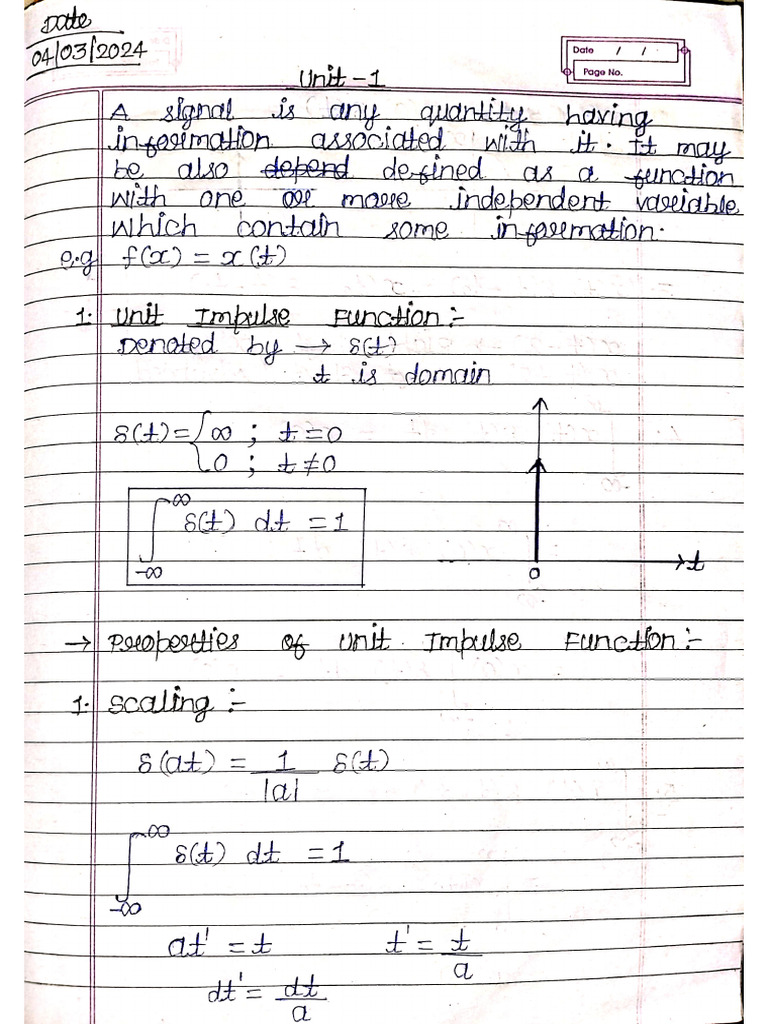 Date
04/03/2024
Date / /
Page No.
Unit - 1
A signal is any quantity having
information associated with it. It may
be also depend defined as a function
with one or more independent variable
which contain some information.
e.g f(x) = x(t)
1. Unit Impulse Function :-
Denoted by → δ(t)
t is domain
δ(t) = { ∞ ; t = 0
0 ; t ≠ 0
∞
∫ δ(t) dt = 1
-∞
→ t
0
→ Properties of Unit Impulse Function :-
1. Scaling :-
δ(at) = 1 δ(t)
|a|
∞
∫ δ(t) dt = 1
-∞
at' = t t' = t
a
dt' = dt
a